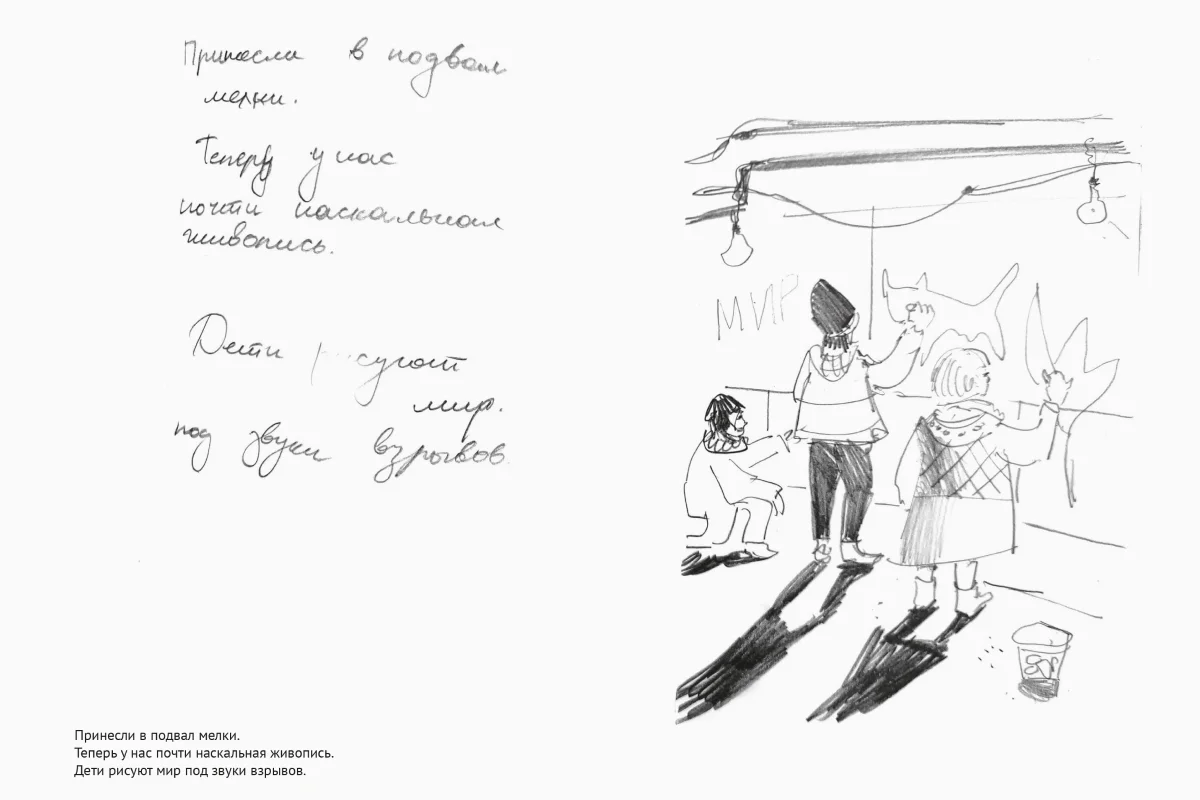 Принесли в подвал
мелки.
Теперь у нас
почти наскальная
живопись.
Дети рисуют
мир.
под звуки взрывов.
МИР
Принесли в подвал мелки.
Теперь у нас почти наскальная живопись.
Дети рисуют мир под звуки взрывов.